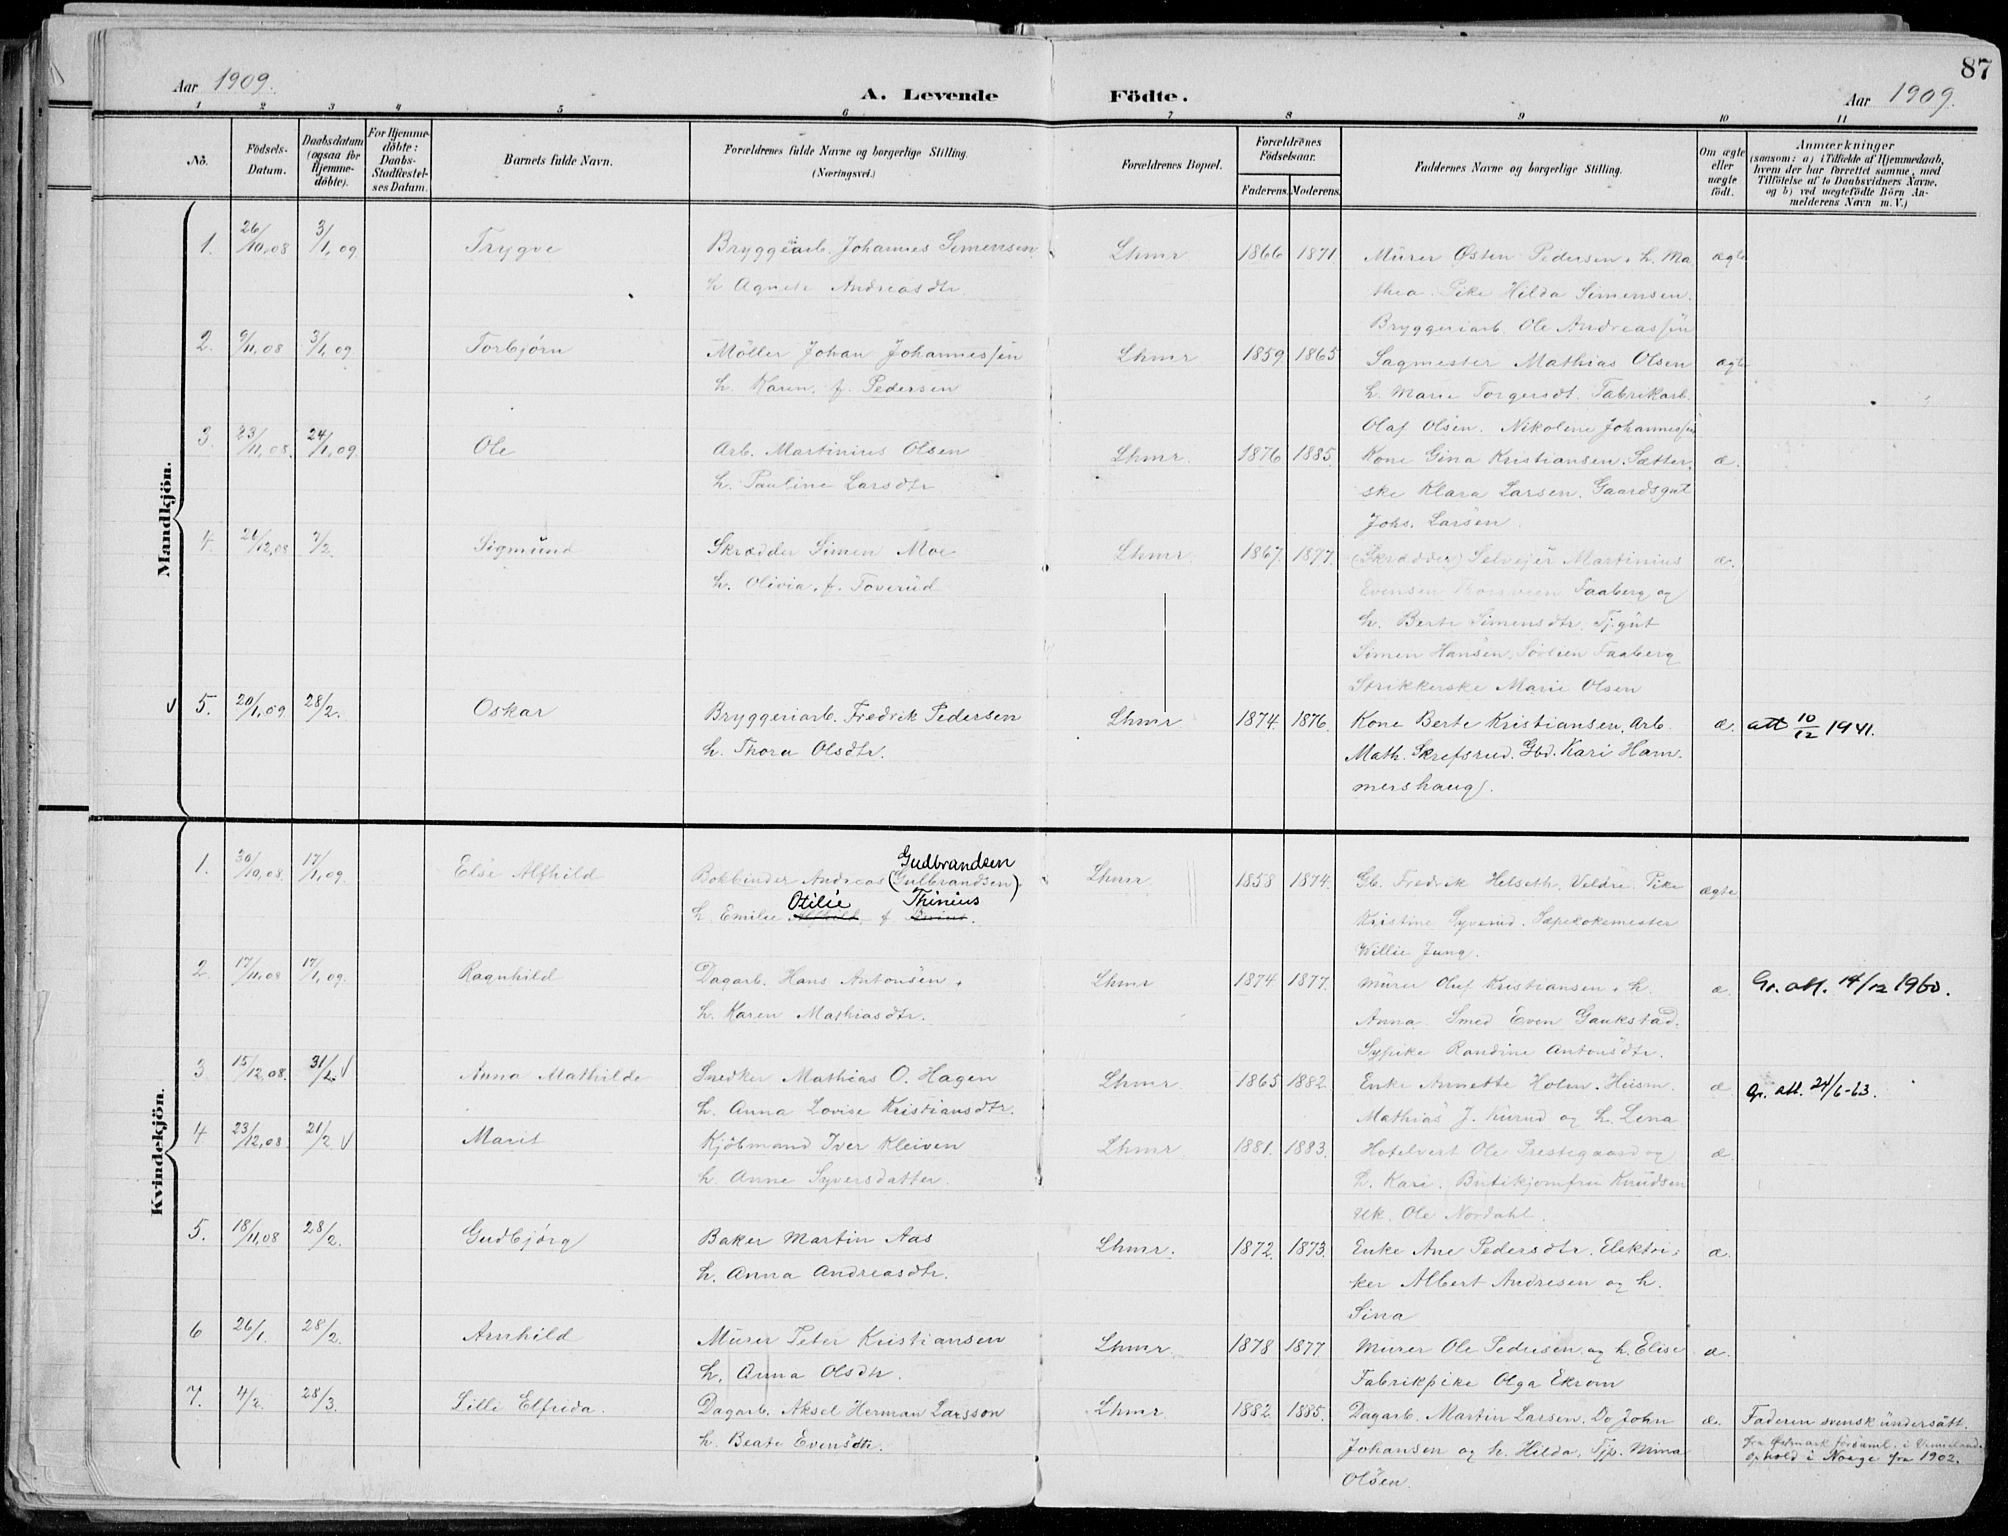 87
Aar 1909.
A. Levende Födte.
Aar 1909.
1 2 3 4 5 6 7 8 9 10 11
No.
Födsels-Datum.
Daabsdatum (ogsaa for Hjemme-döbte).
For Hjemme-döbte: Daabs-Stadfæstel-ses Datum.
Barnets fulde Navn.
Forældrenes fulde Navne og borgerlige Stilling.
(Næringsvei.)
Forældrenes Bopæl.
Forældrenes Födselsaar.
Faderens. Moderens.
Faddernes Navne og borgerlige Stilling.
Om ægte eller uægte födt.
Anmærkninger
(saasom: a) i Tilfælde af Hjemmedaab,
hvem der har forrettet samme, med
Tilföielse af to Daabsvidners Navne,
og b) ved uegtefödte Börn An-
melderens Navn m. V.)
Mandkjön.
1. 26/10,08 3/1,09 Trygve Bryggeriarb. Johannes Simensen Lhmr 1866 1871 Murer Østen Pedersen, h. Ma ægte
h. Agnete Andreasdtr thea. Pike Hilda Simensen.
Bryggeriarb. Ole Andreassen
2. 9/11,08 3/1,09 Torbjørn Möller Johan Johannessen Lhmr 1859 1865 Sagmester Mathias Olsen ægte
h. Karen, f. Pedersen h. Marie Torgersdt. Fabrikarb.
Olaf Olsen. Nikoline Johannessen
3. 23/11,08. 24/1,09 Ole Arb. Martinius Olsen Lhmr. 1876 1885 Kone Gina Kristiansen. Sætter- æ.
h. Pauline Larsdtr ske Klara Larsen. Gaardsgut
Johs. Larsen.
4. 26/12,08 7/2. Sigmund Skrædder Simen Moe Lhmr 1867. 1877. (Skrædder) Selveier Martinius æ.
h. Olivia, f. Toverud Evensen Faaberg og
h. Berte Simensdtr. Tj.gut
Simen Hansen, Sørlien Faaberg
Strikkerske Marie Olsen
5. 20/1,09 28/2. Oskar Bryggeriarb. Fredrik Pedersen Lhmr 1874. 1876. Kone Berte Kristiansen, Arb. æ. att 10/12 1941.
h. Thora Olsdtr. Math. Skrefsrud. Gbd. Kari Ham-
mershaug.
Kvindekjön.
Gudbrandsen
1. 30/10,08. 17/1,09. Else Alfhild Bokbinder Andreas (Gulbrandsen). Lhmr 1858 1874. Gb. Fredrik Helseth, Veldre. Pike ægte
Otilie Thinius
h. Emilie Alfhild f. Kristine Syverud. Sæpekokemester
Willie Jung.
2. 17/11,08 17/1,09. Ragnhild Dagarb. Hans Antonsen, Lhmr 1874 1877. Murer Oluf Kristiansen, h. æ. Gr. att. 14/12 1960.
h. Karen Mathiasdtr. Anna. Smed Even Gaukstad.
Sypike Randine Antonsdtr.
3 15/12,08. 31/2. Anna Mathilde Snedker Mathias O. Hagen Lhmr 1865 1882. Enke Annette Holm. Husm. æ Gr. att. 24/6-63.
h. Anna Lovise Kristiansdtr. Mathias J. Kurud og h. Lena
4 23/12,08. 21/2 Marit Kjöbmand Iver Kleiven Lhmr 1881. 1883. Hotelvert Ole Prestegaard og æ.
h. Anne Syversdatter. h. Kari. Butikjomfru Knudsen
Uk. Ole Nordahl.
5. 18/11,08 28/2. Gudbjörg Baker Martin Aas Lhmr. 1872. 1873. Enke Ane Pedersdtr. Elektri- æ.
h. Anna Andreasdtr. ker Albert Andresen og h.
Sina
6 26/1. 28/2. Arnhild Murer Peter Kristiansen Lhmr 1878 1877 Murer Ole Pedersen og h. Elise æ.
h. Anna Olsdtr. Fabrikpike Olga Ekrom
7. 4/2. 28/3. Lilli Elfrida. Dagarb. Aksel Herman Larsson Lhmr 1882. 1885. Dagarb. Martin Larsen. Do John æ. Faderen svensk undersått.
h. Beate Evensdtr. Johansen og h. Hilda. Tjp. Mina fra Østmark församl. i Vermeland
Olsen. ophold i Norge fra 1902.